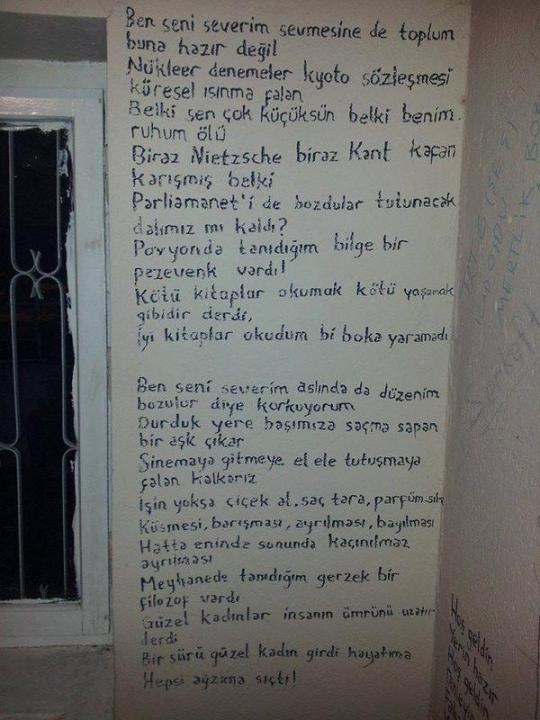 Ben seni severim sevmesine de toplum
buna hazır değil
Nükleer denemeler kyoto sözleşmesi
küresel ısınma falan
Belki sen çok küçüksün belki benim
ruhum ölü
Biraz Nietzsche biraz Kant kafan
karışmış belki
Parliamanet'i de bozdular tutunacak
dalımız mı kaldı?
Pavyonda tanıdığım bilge bir
pezevenk vardı!
Kötü kitaplar okumak kötü yaşamak
gibidir derdi,
İyi kitaplar okudum bi boka yaramadı
Ben seni severim aslında da düzenim
bozulur diye korkuyorum
Durduk yere başımıza saçma sapan
bir aşk çıkar
Sinemaya gitmeye el ele tutuşmaya
falan kalkarız
İşin yoksa çiçek al, saç tara, parfüm sık
Küsmesi, barışması, ayrılması, bayılması
Hatta eninde sonunda kaçınılmaz
ayrılması
Meyhanede tanıdığım gerzek bir
filozof vardı
Güzel kadınlar insanın ömrünü uzatır
derdi
Bir sürü güzel kadın girdi hayatıma
Hepsi ağzıma sıçtı!
Hoş geldin
Yerin hazır
Hoş geldin